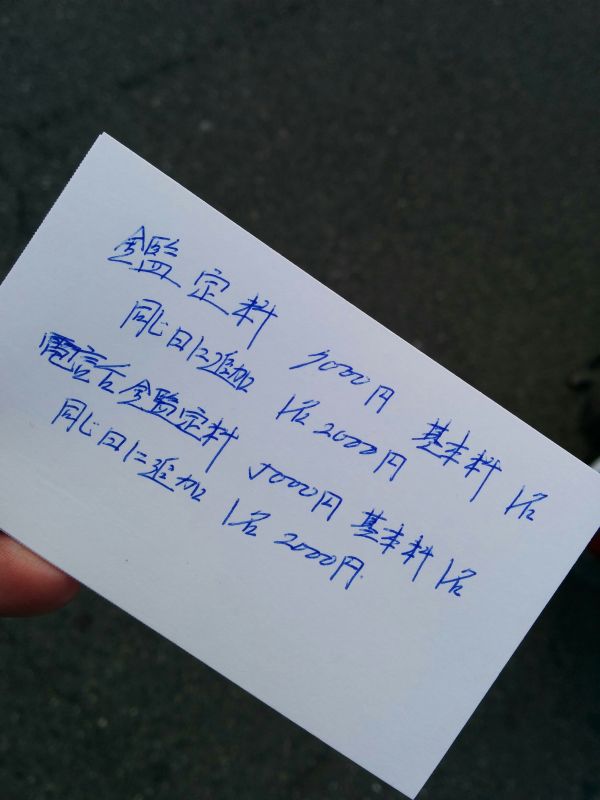 鑑定料 7000円 基本料 1名
同じ日に追加 1名 2000円
電話鑑定料 5000円 基本料 1名
同じ日に追加 1名 2000円